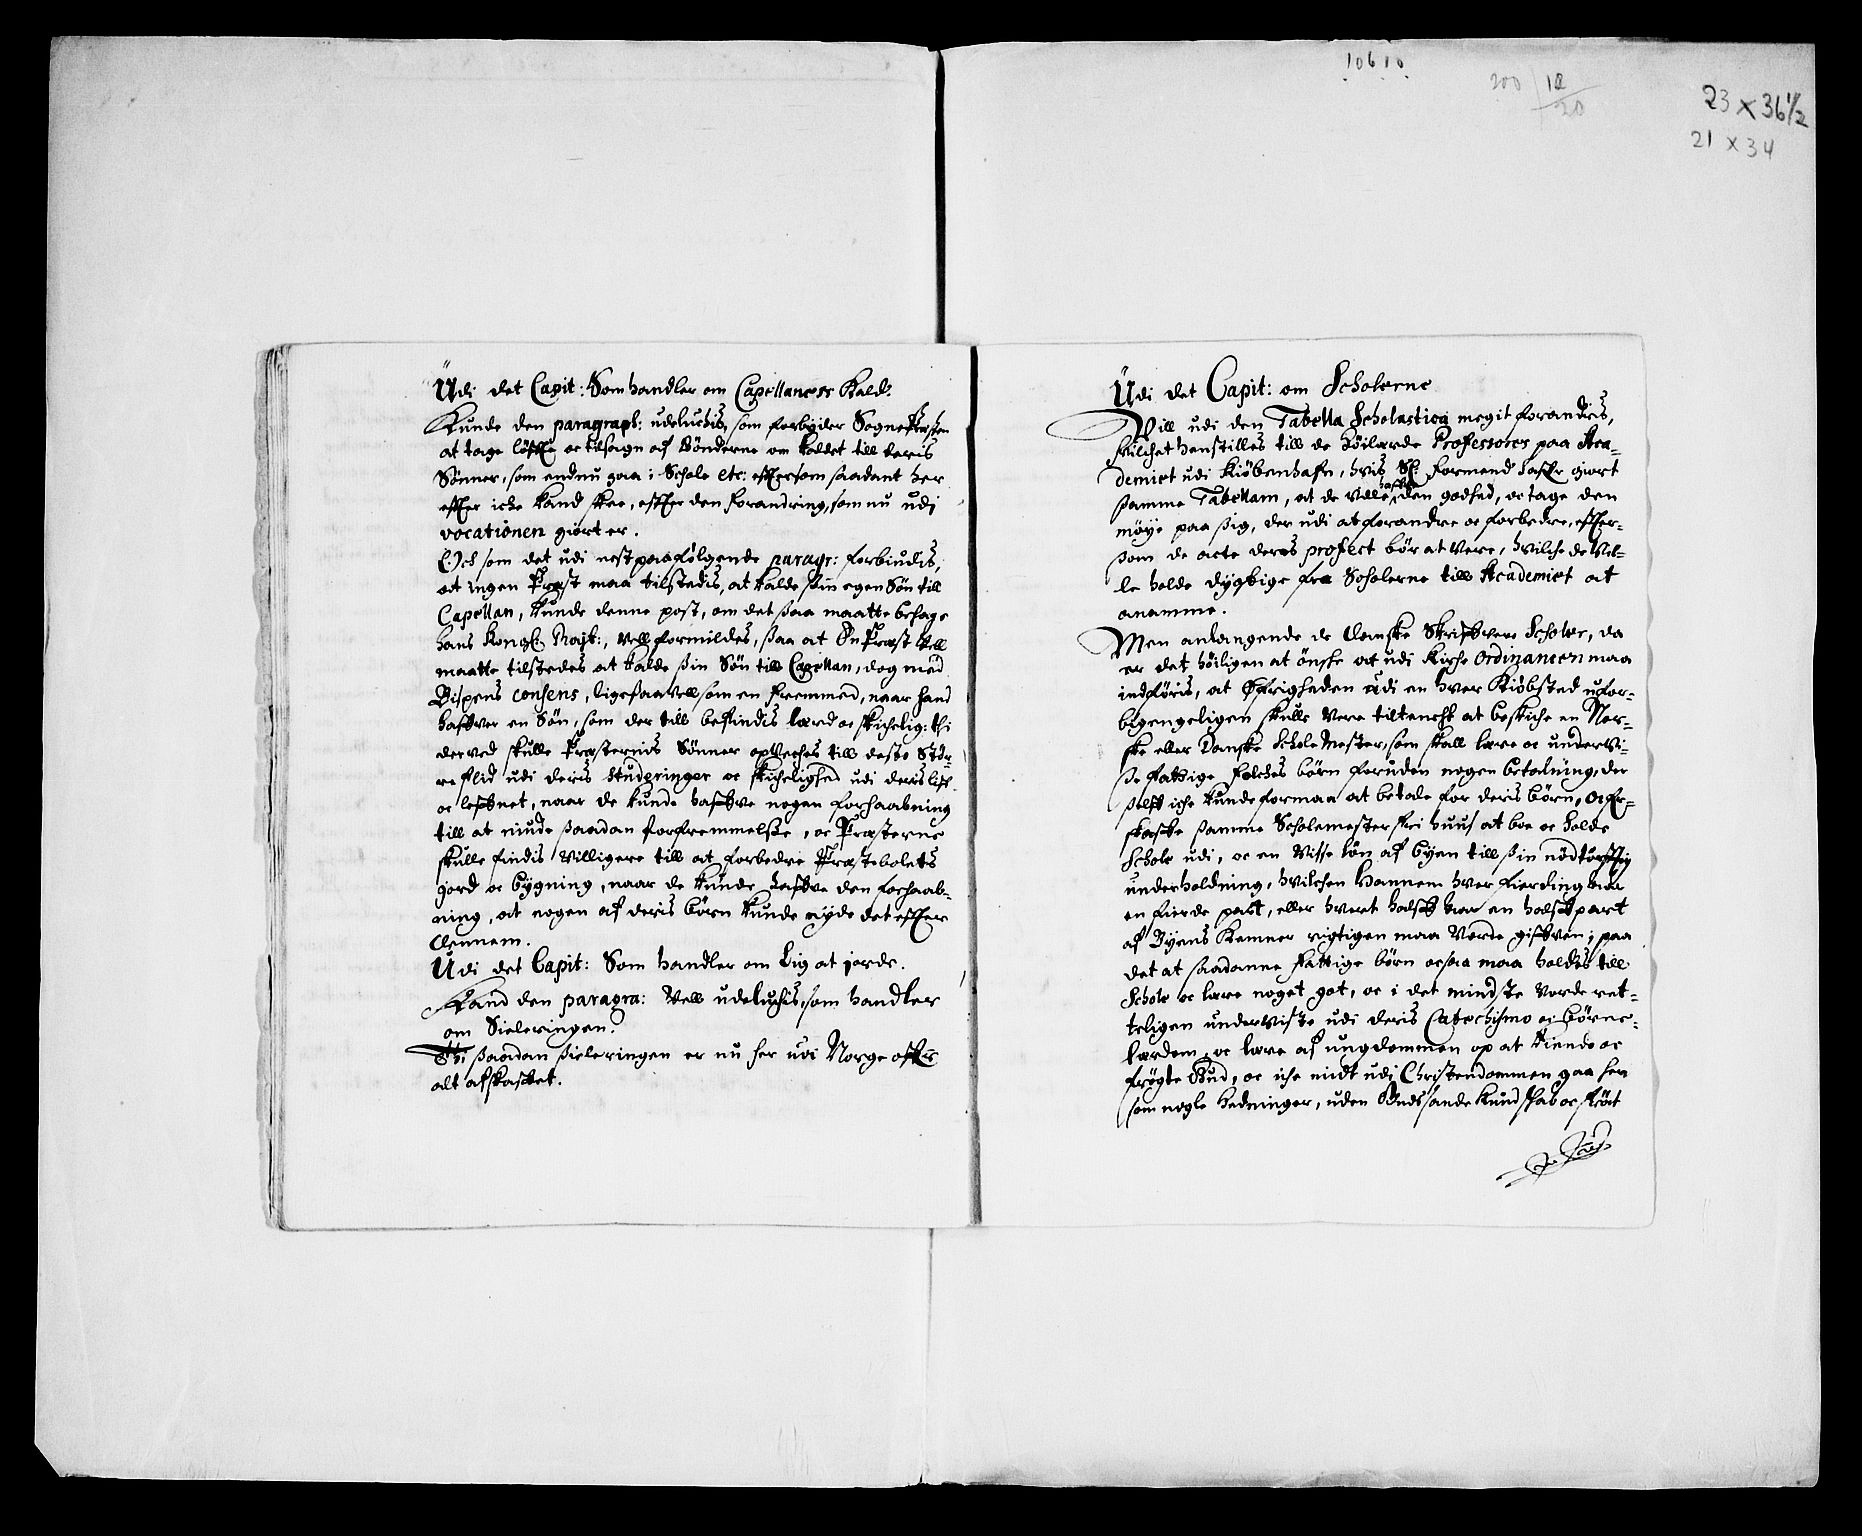 10610
200 12
20
23 x 36 1/2
21 x 34
Udi det Capit: Som handler om Capellaners Kald.
Kunde den paragraph: udeluchis, som forbyder Sognepresten
at tage löffte oc tilsagn af Bönderne om Kaldet till deris
Sönner, som endnu gaa i Schole etc: effterson saadant her
effter iche kand skee, effter den forandring, som nu udj
vocationen giort er.
Och som det udi nest paafölgende paragr: forbiudis,
at ingen Præst maa tilstedis, at kalde sin egen Sön till
Capellan, kunde denne post, om det saa maatte behage
hans Kongl: Mayt:, vell formildes, saa at En Præst vell
maatte tilstedes at kalde sin Sön till Capellan, dog med
Bispens consens, ligesaavell som en fremmed, naar hand
haffver en Sön, som der till befindis lærd oc skichelig: thi
derved skulle Præsternis Sönner opveches till deste Stör-
re flid udi deris studeringer oc skichelighed udi deris liff
oc leffnet, naar de kunde haffve nogen forhaabning
till at niude saadan forfremmelsse, oc Præsterne
skulle findis villigere till at forbedre Præstebolets
gord oc bygning, naar de kunde haffve den forhaab-
ning, at nogen af deris börn kunde nyde det effter
dennem.
Udi det Capit: Som handler om Lig at jorde.
Kand den paragra: vell udeluchis, som handler
om Sieleringen.
Thi saadan sieleringen er nu her udi Norge offr
alt afskaffet.
Udi det Capit: om Scholerne
Vill udi den Tabella Scholastica megit forandris,
huilchet henstilles till de höilærde Professores paa Aca-
demiet udi Kiöbenhafn, hvis Sl: formend haffr giort
samme Tabellam, at de ville haffve den godhed, oc tage den
möye paa sig, der udi at forandre oc forbedre, effter-
som de acte deres profect bör at være, hvilche de vil-
le holde dygtige fra Scholerne till Academiet at
anamme.
Men anlangende de danske Skriffvere Scholer, da
er det höiligen at önske at udi Kirche Ordinancen maa
indföris, at Öfrigheden udi en hver Kiöbsted ufor-
bigengeligen skulle vere tiltencht at beskiche en Nor-
ske eller Danske Schole Mester, som skall lære oc undervi-
se fattige folches börn foruden nogen betalning, der
selff iche kunde formaa at betale for deris börn, oc for-
skaffe samme Scholemester frj huus at boe oc holde
Schole udi, oc en visse lön af byen till sin nödtörfftig
underholdning, hvilchen hannem hver fierding aar
en fierde part, eller hvert halfft aar en halffpart
af Byens Kemner rigtigen maa vorde giffven; paa
det at saadanne fattige börn ocsaa maa holdes till
Schole oc lære noget got, oc i det mindste vorde ret-
teligen underviste udi deris Catechismo oc börne-
lærdom, oc lære af ungdommen op at kiende oc
fröyte Gud, oc iche midt udi Christendommen gaa hen
som nogle hedninger, uden Guds sande kundskab oc fröct